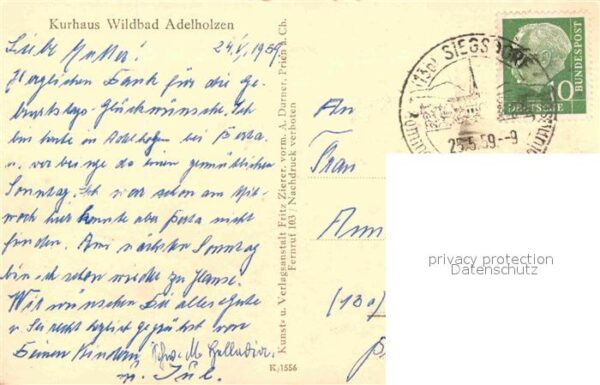 Kurhaus Wildbad Adelholzen
24.V.1959
Liebe Mutter!
Herzlichen Dank für die Ge-
burtstags-Glückwünsche. Ich
bin heute in Adelholzen bei
u. verbringe da einen gemütlichen
Sonntag. Ich war schon am Mitt-
woch hier konnte aber nicht
finden. Am nächsten Sonntag
bin ich schon wieder zu Hause.
Wir wünschen Dir alles Gute
u. Sei recht herzlich gegrüßt von
Deinen Kindern,
u.
K/1556
Kunst- u. Verlagsanstalt Fritz Zierer, vorm. A. Durner, Prien a. Ch.
Fernruf 103 / Nachdruck verboten
An
Frau
(13a)
(13b) SIEGSDORF
25.5.59.-9
10
DEUTSCHE
BUNDESPOST
privacy protection
Datenschutz